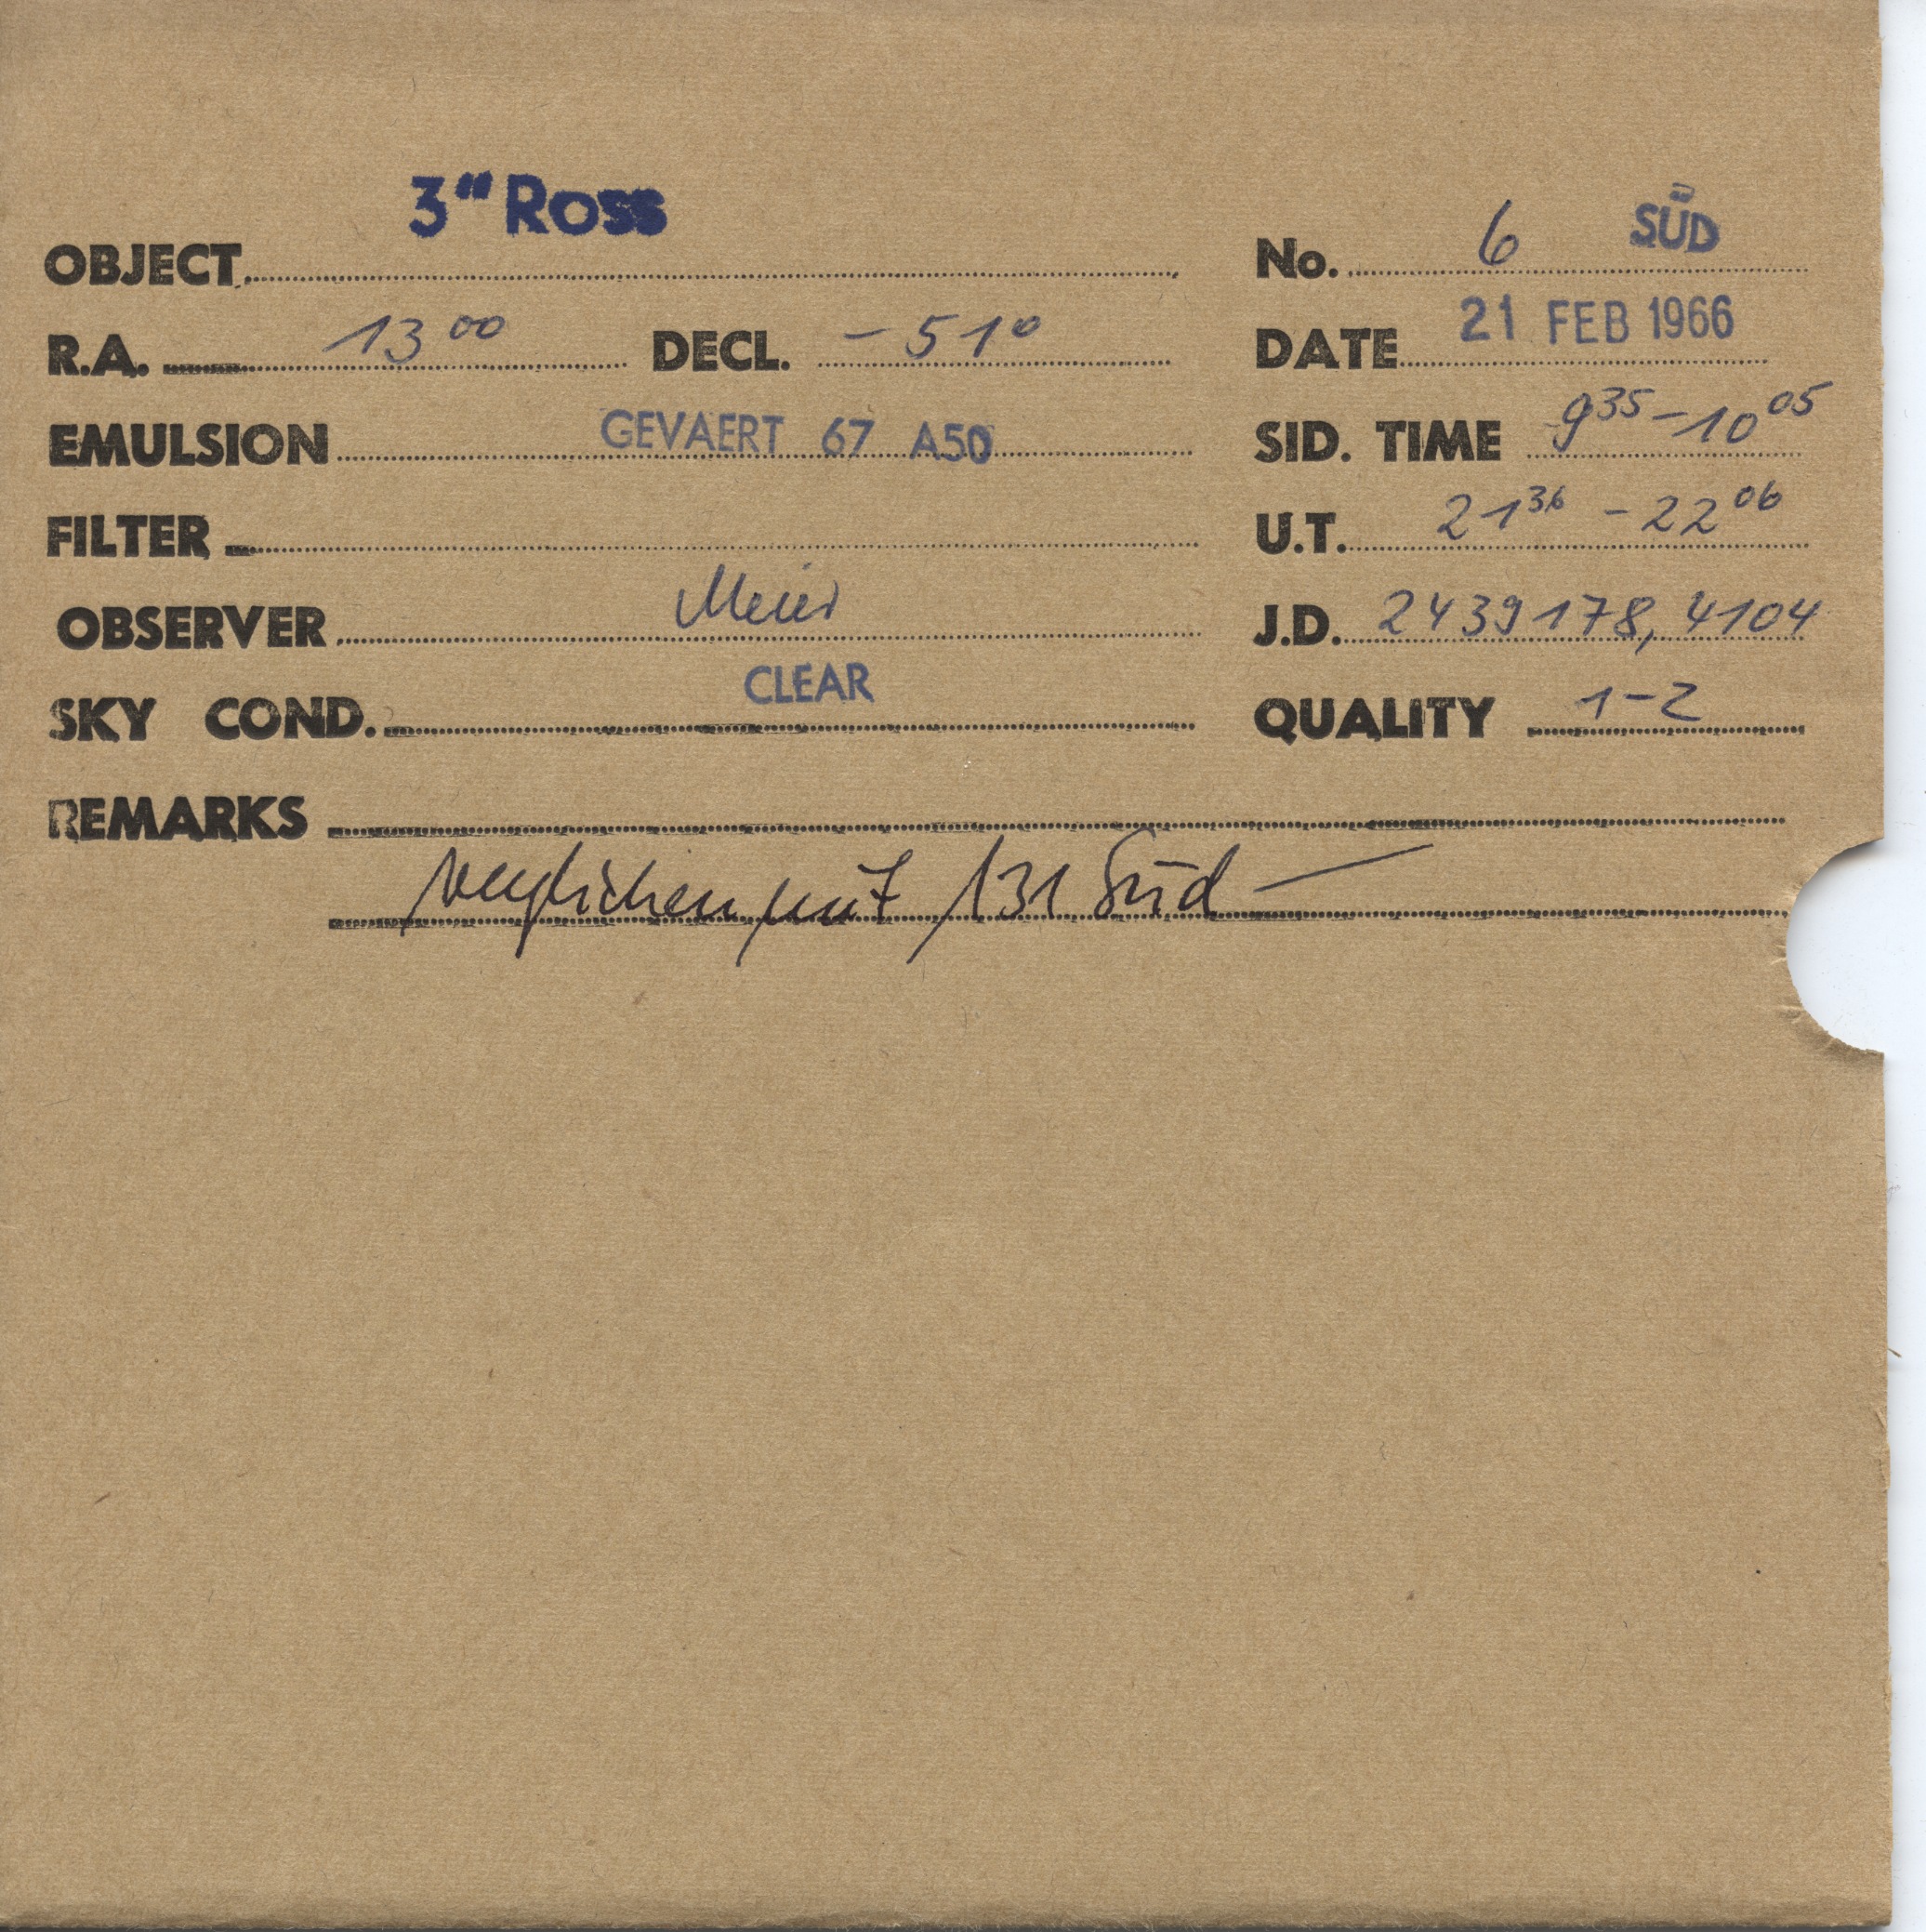 3" Ross
OBJECT No. 6 SÜD
R.A. 13 00 DECL. -51° DATE 21 FEB 1966
EMULSION GEVAERT 67 A50 SID. TIME 9 35 - 10 05
FILTER U.T. 21 36 - 22 06
OBSERVER Meier J.D. 2439178,4104
SKY COND. CLEAR QUALITY 1-2
REMARKS
verglichen mit 131 Süd —